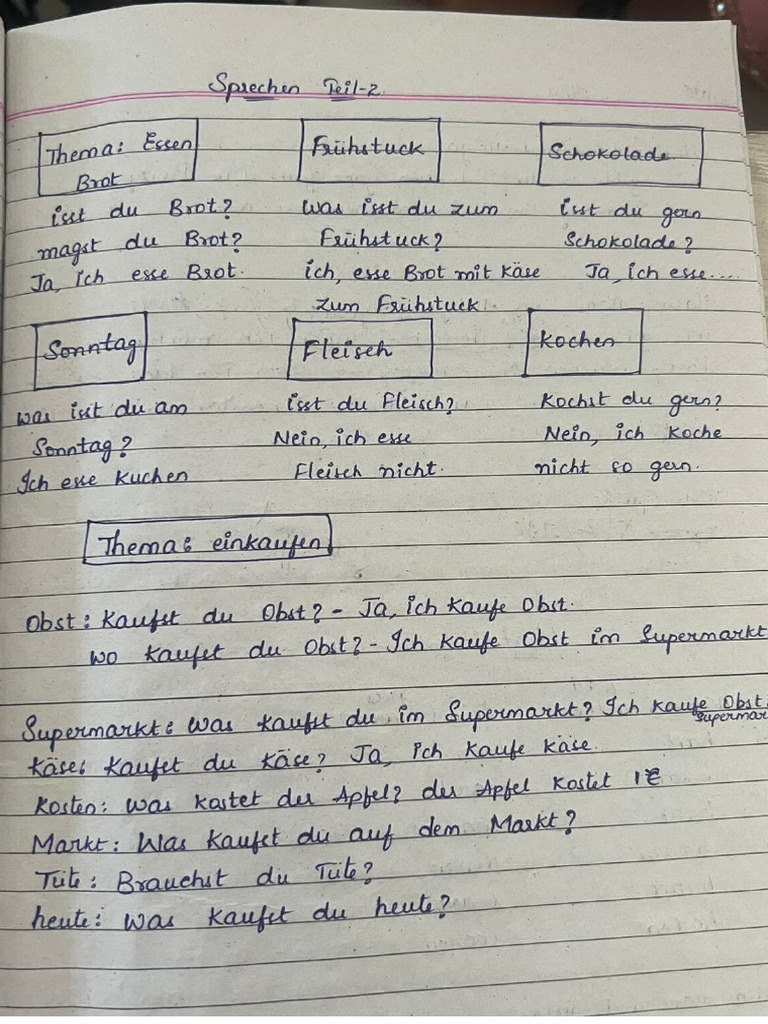 Sprechen Teil-2.
Thema: Essen
Brot
isst du Brot?
magst du Brot?
Ja, ich esse Brot.
Frühstuck
was isst du zum
Frühstuck?
ich, esse Brot mit Käse
zum Frühstuck
Schokolade
isst du gern
Schokolade?
Ja, ich esse....
Sonntag
was isst du am
Sonntag?
Ich esse Kuchen
Fleisch
isst du Fleisch?
Nein, ich esse
Fleisch nicht.
Kochen
Kochst du gern?
Nein, ich koche
nicht so gern.
Thema: einkaufen
Obst: Kaufst du Obst? - Ja, ich kaufe Obst.
wo kaufst du Obst? - Ich kaufe Obst im Supermarkt
Supermarkt: was kaufst du im Supermarkt? Ich kaufe Obst.
Supermar
Käse: Kaufst du Käse? Ja, ich kaufe käse.
Kosten: was kostet der Apfel? der Apfel kostet 1€
Markt: Was kaufst du auf dem Markt?
Tüte: Brauchst du Tüte?
heute: was kaufst du heute?